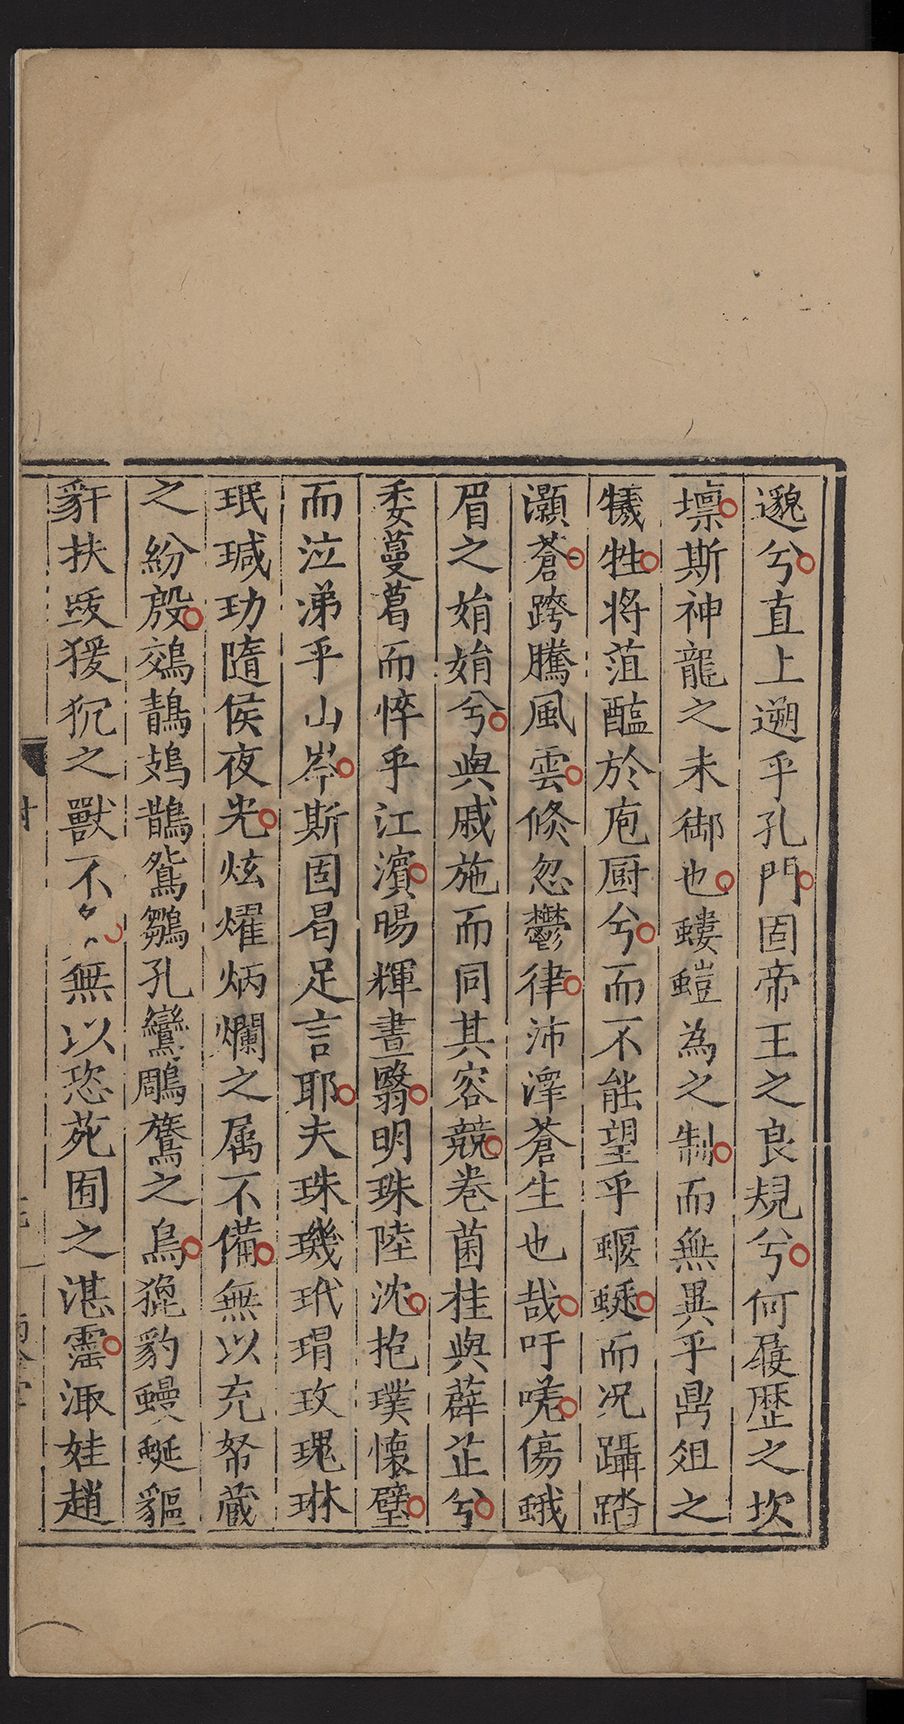 邈兮直上遡乎孔門固帝王之良規兮何屢歷之坎
壈斯神龍之未御也螻螘為之制而無異乎鼎俎之
犧牲將菹醢於庖厨兮而不能望乎蝘蜓而况躡踏
灝蒼跨騰風雲倐忽鬱律沛澤蒼生也哉吁嘵傷蛾
眉之娋娋兮與戚施而同其容競卷菌桂與薜芷兮
委蔓葛而悴乎江濱暘輝晝翳明珠陸沈抱璞懷璧
而泣涕乎山岑斯固曷足言耶夫珠璣玳瑁玫瑰琳
珉瑊玏隨侯夜光炫燿炳爛之属不備無以充帑藏
之紛殷鵁鶄鴂鵲鴛鶵孔鸞鵰鶩之鳥羆豹蟃蜒貙
豻扶𤡔猨狖之獸不無以恣苑囿之湛霔娵娃趙